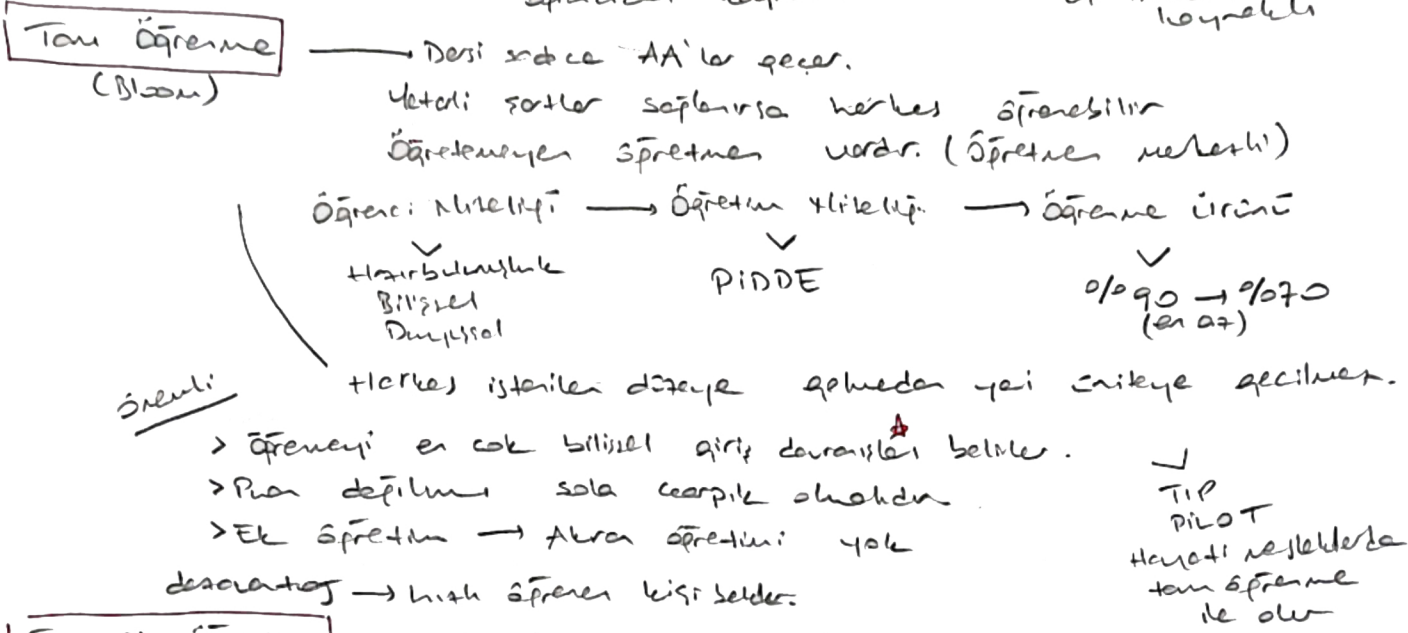 kaynaklı
Tam Öğrenme → Dersi sadece AA'lar geçer.
(Bloom)
Yeterli şartlar sağlanırsa herkes öğrenebilir
Öğretemeyen öğretmen vardır. (Öğretmen merkezli)
Öğrenci Niteliği → Öğretim Niteliği → Öğrenme ürünü
Hazırbulunuşluk
Bilişsel
Duyuşsal
PiDDE
%90 → %70
(en az)
Herkes istenilen düzeye gelmeden yeni üniteye geçilmez.
önemli
> Öğrenmeyi en çok bilişsel giriş davranışları belirler.
> Puan dağılımı sola çarpık olmalıdır
> Ek öğretim → Akran öğretimi yok
dezavantaj → hızlı öğrenen kişi bekler.
TIP
PİLOT
Hayati mesleklerde
tam öğrenme
ile olur